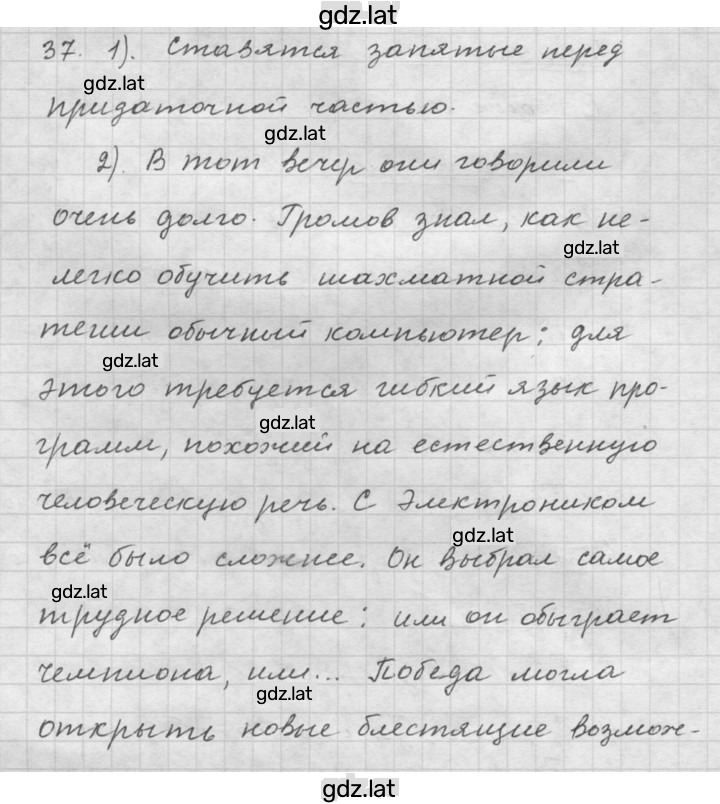 gdz.lat
37. 1). Ставятся запятые перед
gdz.lat
придаточной частью.
gdz.lat
2). В тот вечер они говорили
очень долго. Громов знал, как не-
gdz.lat
легко обучить шахматной стра-
тегии обычный компьютер: для
gdz.lat
этого требуется гибкий язык про-
gdz.lat
грамм, похожий на естественную
человеческую речь. С Электроником
gdz.lat
всё было сложнее. Он выбрал самое
gdz.lat
трудное решение: или он обыграет
чемпиона, или... Победа могла
gdz.lat
открыть новые блестящие возмож-
gdz.lat